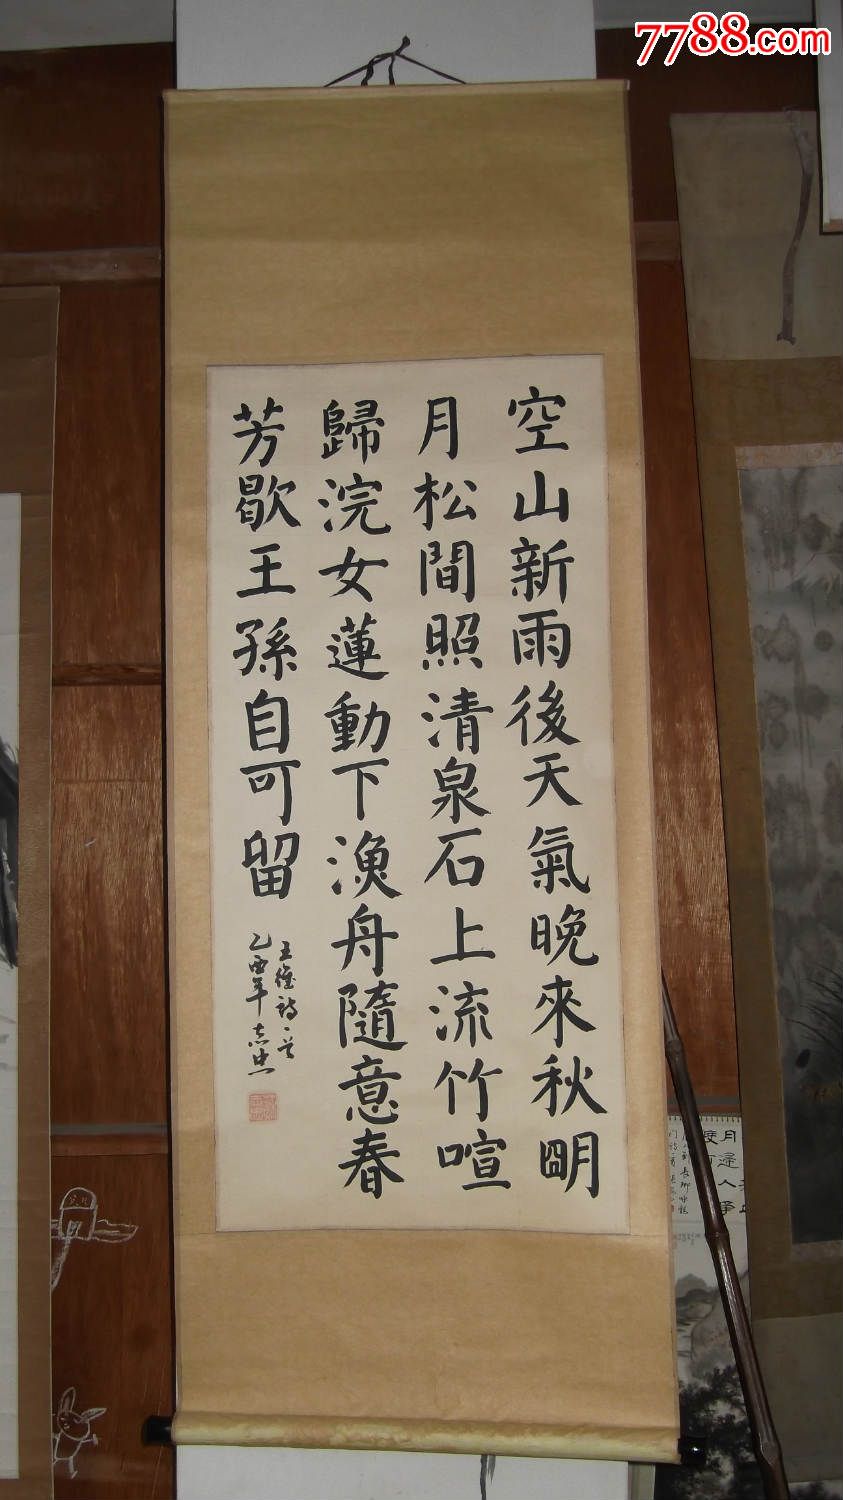 7788.com
空山新雨後天氣晚來秋明
月松間照清泉石上流竹喧
歸浣女蓮動下漁舟隨意春
芳歇王孫自可留
王維詩一首
乙酉年志忠